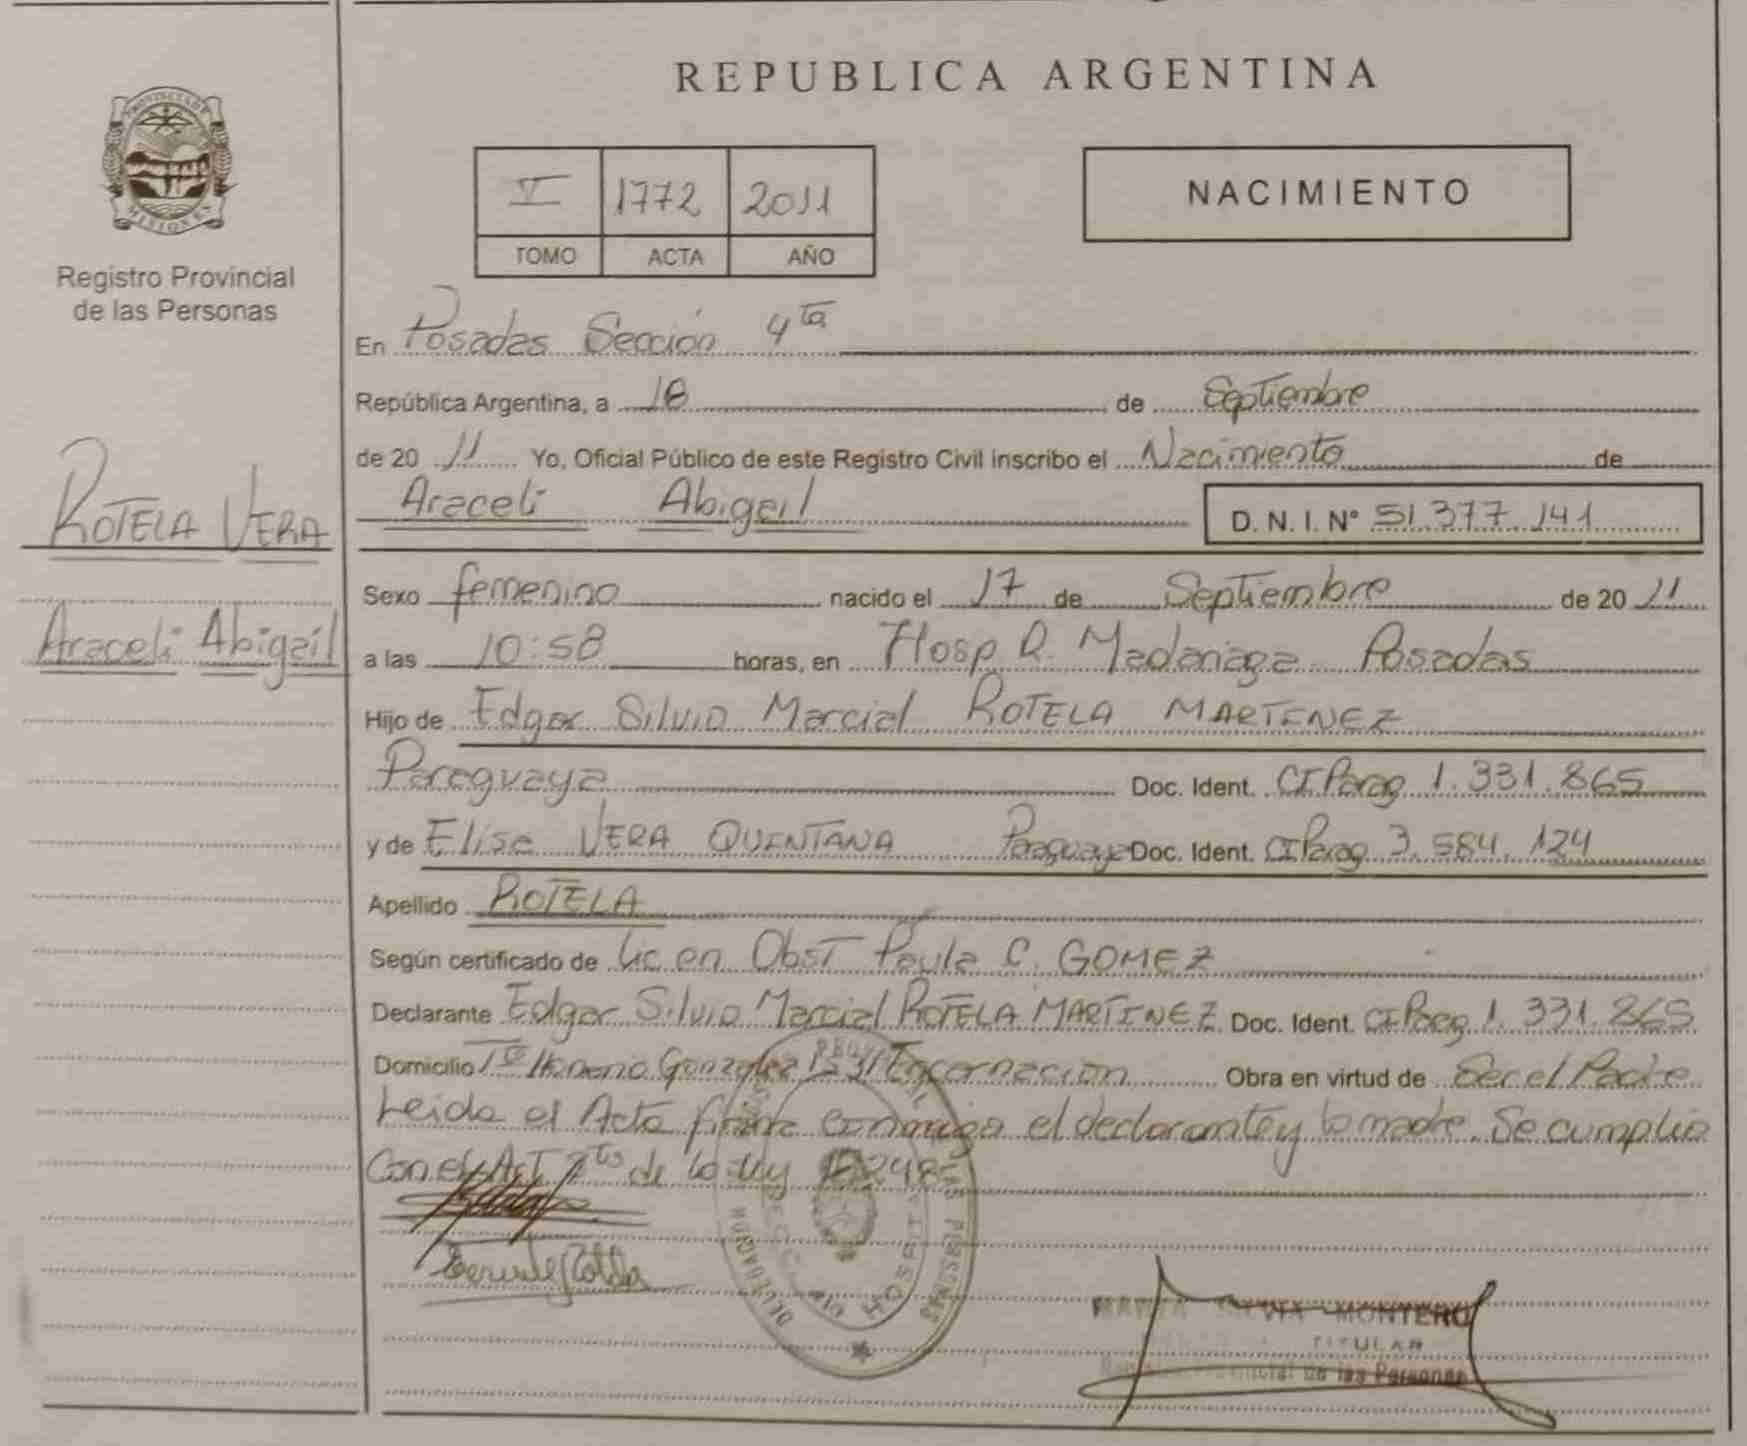 PROVINCIA DE
MISIONES
Registro Provincial
de las Personas
ROTELA VERA
Araceli Abigail
REPUBLICA ARGENTINA
V 1772 2011
TOMO ACTA AÑO
NACIMIENTO
En Posadas Sección 4ta
República Argentina, a de Septiembre
de 20 11 Yo, Oficial Público de este Registro Civil inscribo el Nacimiento de
Araceli Abigail D. N. I. Nº 51.377.141
Sexo femenino nacido el 17 de Septiembre de 20 11
a las 10:58 horas, en Hosp. R. Madariaga Posadas
Hijo de Edgar Silvio Marcial ROTELA MARTINEZ
Paraguaya Doc. Ident. CI Parag 1.331.865
y de Elisa VERA QUINTANA Paraguaya Doc. Ident. CI Parag 3.584.124
Apellido ROTELA
Según certificado de Lic en Obst Paula C. GOMEZ
Declarante Edgar Silvio Marcial ROTELA MARTINEZ Doc. Ident. CI Parag 1.331.865
Domicilio Gonzalez Encarnación Obra en virtud de Ser el Padre
Leida el Acta firma conmigo el declarante y la madre. Se cumplio
Con el Art de la ley
MONTERO
TITULAR
de las Personas
DELEGACION
HOSPITAL